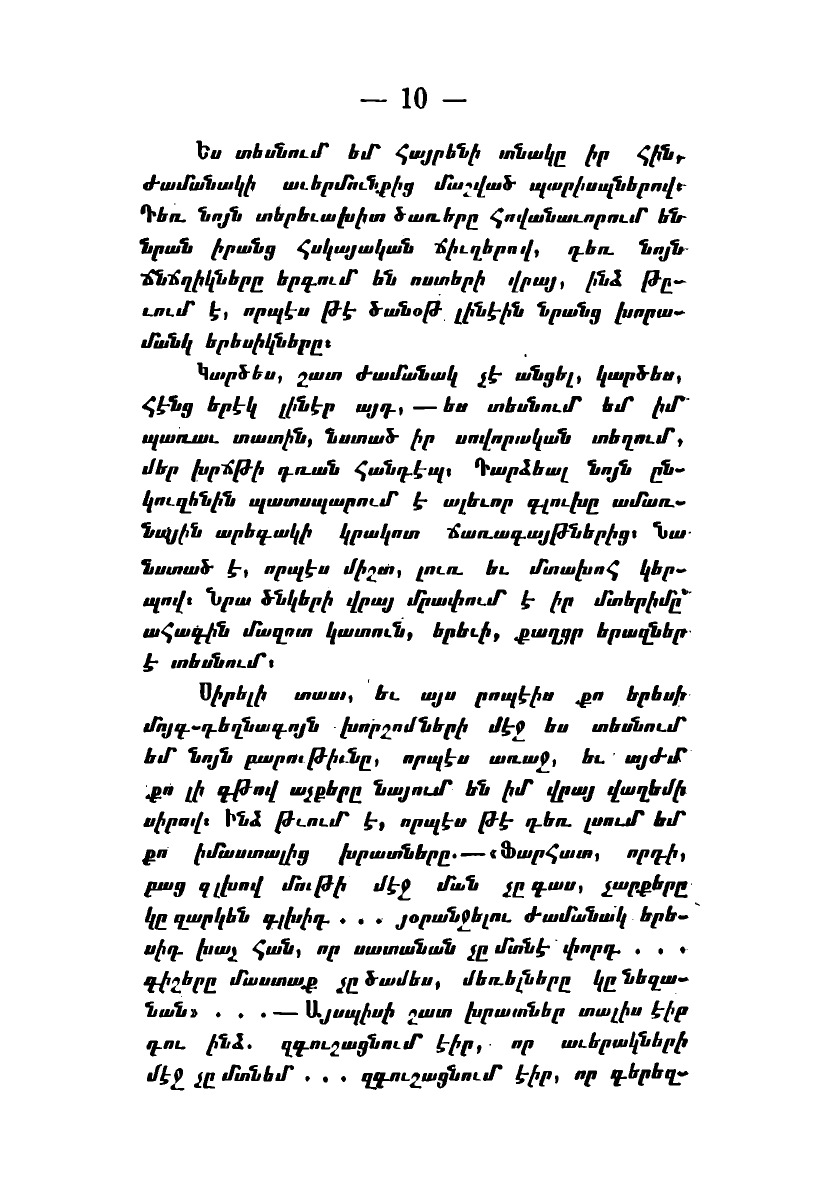 — 10 —
Ես տեսնում եմ հայրենի տնակը իր հին,
ժամանակի աւերմունքից մաշված պարիսպներով։
Դեռ նոյն տերեւախիտ ծառերը հովանաւորում են
նրան իրանց հսկայական ճիւղերով, դեռ նոյն
ճնճղիկները երգում են ոստերի վրայ, ինձ թը-
ւում է, որպէս թէ ծանօթ լինէին նրանց խորա-
մանկ երեսիկները։
Կարծես, շատ ժամանակ չէ անցել, կարծես,
հէնց երէկ լինէր այդ, — ես տեսնում եմ իմ
պառաւ տատին, նստած իր սովորական տեղում,
մեր խրճթի դռան հանդէպ։ Դարձեալ նոյն ըն-
կուզենին պատսպարում է ալեւոր գլուխը ամառ-
նային արեգակի կրակոտ ճառագայթներից։ Նա
նստած է, որպէս միշտ, լուռ եւ մտախոհ կեր-
պով։ Նրա ծնկերի վրայ մրափում է իր մտերիմը՝
ահագին մազոտ կատուն, երեւի, քաղցր երազներ
է տեսնում։
Սիրելի տատ, եւ այս րոպէիս քո երեսի
մոյգ-դեղնագոյն խորշոմների մէջ ես տեսնում
եմ նոյն բարութիւնը, որպէս առաջ, եւ այժմ
քո լի գթով աչքերը նայում են իմ վրայ վաղեմի
սիրով։ Ինձ թւում է, որպէս թէ դեռ լսում եմ
քո իմաստալից խրատները.—«Ֆարհատ, որդի,
բաց գլխով մութի մէջ ման չը գաս, չարքերը
կը զարկեն գլխիդ . . . յօրանջելու ժամանակ երե-
սիդ խաչ հան, որ սատանան չը մտնէ փորդ . . .
գիշերը մաստաք չը ծամես, մեռելները կը նեղա-
նան» . . .—Այսպիսի շատ խրատներ տալիս էիր
դու ինձ. զգուշացնում էիր, որ աւերակների
մէջ չը մտնեմ . . . զգուշացնում էիր, որ գերեզ-